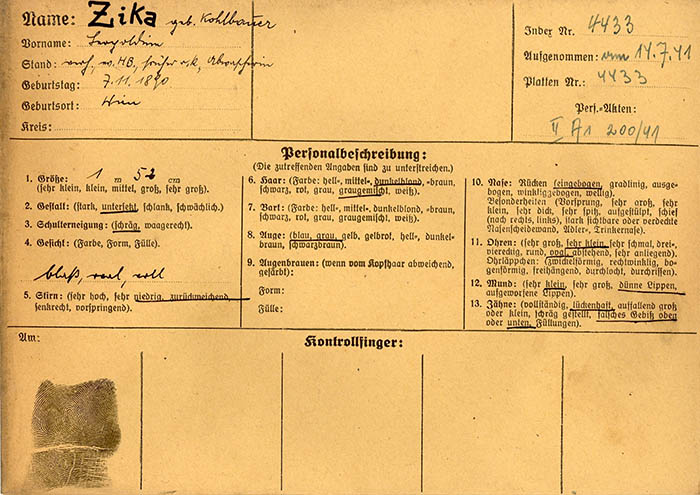 Name: Zika geb. Kohlbauer
Vorname: Leopoldine
Stand: verh., früher r.k.,
Geburtstag: 7.11.1890
Geburtsort: Wien
Kreis:
Index Nr. 4433
Aufgenommen: am 14.7.41
Platten Nr.: 4433
Pers.-Akten:
II A1 200/41
Personalbeschreibung:
(Die zutreffenden Angaben sind zu unterstreichen).
1. Größe: 1 m 52 cm
(sehr klein, klein, mittel, groß, sehr groß).
2. Gestalt: (stark, untersetzt, schlank, schwächlich.)
3. Schulterneigung: (schräg, waagerecht).
4. Gesicht: (Farbe, Form, Fülle).
blaß, oval, voll
5. Stirn: (sehr hoch, sehr niedrig, zurückweichend,
senkrecht, vorspringend).
6. Haar: (Farbe: hell-, mittel-, dunkelblond, -braun,
schwarz, rot, grau, graugemischt, weiß).
7. Bart: (Farbe: hell-, mittel-, dunkelblond, -braun,
schwarz, rot, grau, graugemischt, weiß).
8. Auge: (blau, grau, gelb, gelbrot, hell-, dunkel-
braun, schwarzbraun).
9. Augenbrauen: (wenn vom Kopfhaar abweichend,
gefärbt):
Form:
Fülle:
10. Nase: Rücken (eingebogen, gradlinig, ausge-
bogen, winkliggebogen, wellig).
Besonderheiten (Vorsprung, sehr groß, sehr
klein, sehr dick, sehr spitz, aufgestülpt, schief
(nach rechts, links), stark sichtbare oder verdeckte
Nasenscheidewand, Adler-, Trinkernase).
11. Ohren: (sehr groß, sehr klein, sehr schmal, drei-,
viereckig, rund, oval, abstehend, sehr anliegend).
Ohrläppchen: (zwickelförmig, rechtwinklig, bo-
genförmig, freihängend, durchlocht, durchrissen).
12. Mund: (sehr klein, sehr groß, dünne Lippen,
aufgeworfene Lippen).
13. Zähne: (vollständig, lückenhaft, auffallend groß
oder klein, schräg gestellt, falsches Gebiß oben
oder unten, Füllungen).
Am:
Kontrollfinger: